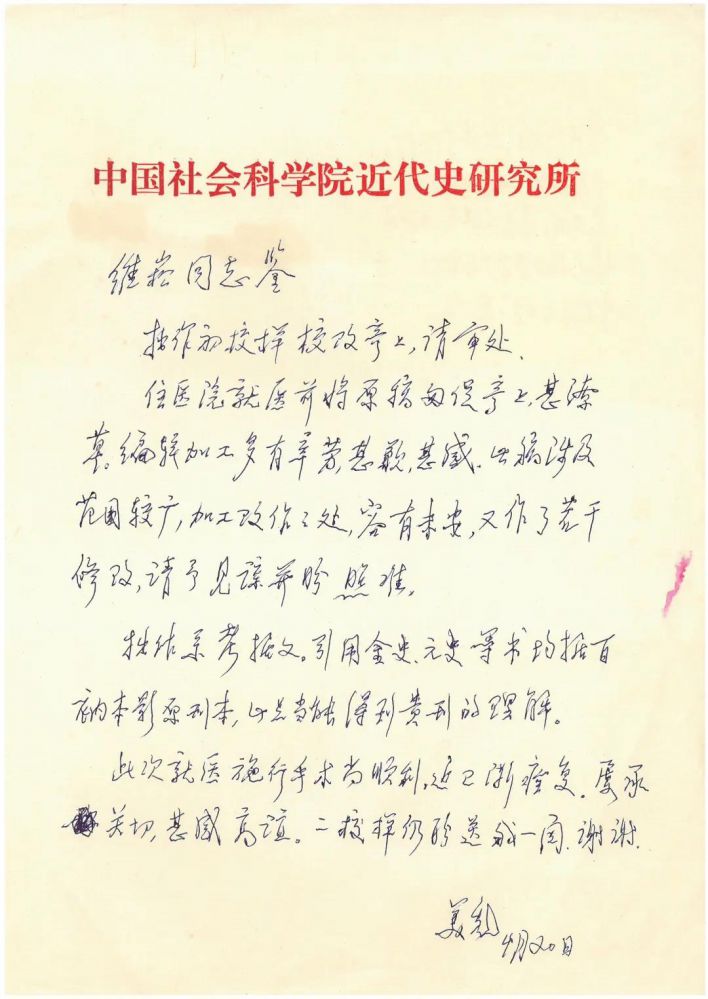 中国社会科学院近代史研究所
维崧同志鉴
拙作初校样校改寄上,请审处。
住医院就医前将原稿匆促寄上,甚潦
草。编辑加工多有辛劳,甚歉,甚感。此稿涉及
范围较广,加工改作之处,容有未安,又作了若干
修改,请予见谅并盼照准。
拙作系考据文。引用金史、元史等书均据百
衲本影原刊本,此点当能得到贵刊的理解。
此次就医施行手术尚顺利,近已渐痊复。屡承
关切,甚感高谊。二校样仍盼送我一阅。谢谢。
美彪
月20日